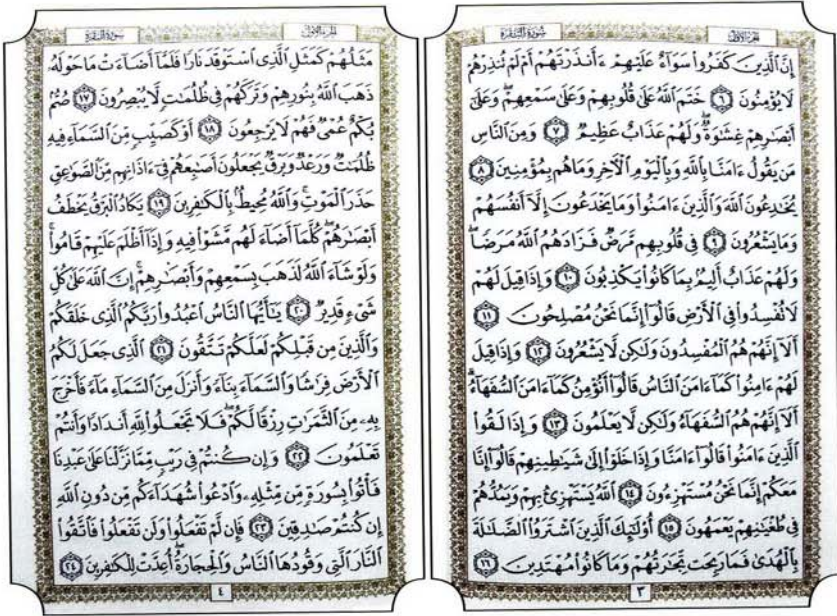 الجزء الأول
سورة البقرة
إِنَّ الَّذِينَ كَفَرُوا سَوَاءٌ عَلَيْهِمْ ءَأَنذَرْتَهُمْ أَمْ لَمْ تُنذِرْهُمْ
لَا يُؤْمِنُونَ ٦ خَتَمَ اللَّهُ عَلَىٰ قُلُوبِهِمْ وَعَلَىٰ سَمْعِهِمْ ۖ وَعَلَىٰ
أَبْصَارِهِمْ غِشَاوَةٌ ۖ وَلَهُمْ عَذَابٌ عَظِيمٌ ٧ وَمِنَ النَّاسِ
مَن يَقُولُ ءَامَنَّا بِاللَّهِ وَبِالْيَوْمِ الْآخِرِ وَمَا هُم بِمُؤْمِنِينَ ٨
يُخَادِعُونَ اللَّهَ وَالَّذِينَ ءَامَنُوا وَمَا يَخْدَعُونَ إِلَّا أَنفُسَهُمْ
وَمَا يَشْعُرُونَ ٩ فِي قُلُوبِهِم مَّرَضٌ فَزَادَهُمُ اللَّهُ مَرَضًا ۖ
وَلَهُمْ عَذَابٌ أَلِيمٌ بِمَا كَانُوا يَكْذِبُونَ ١٠ وَإِذَا قِيلَ لَهُمْ
لَا تُفْسِدُوا فِي الْأَرْضِ قَالُوا إِنَّمَا نَحْنُ مُصْلِحُونَ ١١
أَلَا إِنَّهُمْ هُمُ الْمُفْسِدُونَ وَلَٰكِن لَّا يَشْعُرُونَ ١٢ وَإِذَا قِيلَ
لَهُمْ ءَامِنُوا كَمَا ءَامَنَ النَّاسُ قَالُوا أَنُؤْمِنُ كَمَا ءَامَنَ السُّفَهَاءُ ۗ
أَلَا إِنَّهُمْ هُمُ السُّفَهَاءُ وَلَٰكِن لَّا يَعْلَمُونَ ١٣ وَإِذَا لَقُوا
الَّذِينَ ءَامَنُوا قَالُوا ءَامَنَّا وَإِذَا خَلَوْا إِلَىٰ شَيَاطِينِهِمْ قَالُوا إِنَّا
مَعَكُمْ إِنَّمَا نَحْنُ مُسْتَهْزِءُونَ ١٤ اللَّهُ يَسْتَهْزِئُ بِهِمْ وَيَمُدُّهُمْ
فِي طُغْيَانِهِمْ يَعْمَهُونَ ١٥ أُولَٰئِكَ الَّذِينَ اشْتَرَوُا الضَّلَالَةَ
بِالْهُدَىٰ فَمَا رَبِحَت تِّجَارَتُهُمْ وَمَا كَانُوا مُهْتَدِينَ ١٦
٣
الجزء الأول
سورة البقرة
مَثَلُهُمْ كَمَثَلِ الَّذِي اسْتَوْقَدَ نَارًا فَلَمَّا أَضَاءَتْ مَا حَوْلَهُ
ذَهَبَ اللَّهُ بِنُورِهِمْ وَتَرَكَهُمْ فِي ظُلُمَاتٍ لَّا يُبْصِرُونَ ١٧ صُمٌّ
بُكْمٌ عُمْيٌ فَهُمْ لَا يَرْجِعُونَ ١٨ أَوْ كَصَيِّبٍ مِّنَ السَّمَاءِ فِيهِ
ظُلُمَاتٌ وَرَعْدٌ وَبَرْقٌ يَجْعَلُونَ أَصَابِعَهُمْ فِي ءَاذَانِهِم مِّنَ الصَّوَاعِقِ
حَذَرَ الْمَوْتِ ۚ وَاللَّهُ مُحِيطٌ بِالْكَافِرِينَ ١٩ يَكَادُ الْبَرْقُ يَخْطَفُ
أَبْصَارَهُمْ ۖ كُلَّمَا أَضَاءَ لَهُم مَّشَوْا فِيهِ وَإِذَا أَظْلَمَ عَلَيْهِمْ قَامُوا ۚ
وَلَوْ شَاءَ اللَّهُ لَذَهَبَ بِسَمْعِهِمْ وَأَبْصَارِهِمْ ۚ إِنَّ اللَّهَ عَلَىٰ كُلِّ
شَيْءٍ قَدِيرٌ ٢٠ يَا أَيُّهَا النَّاسُ اعْبُدُوا رَبَّكُمُ الَّذِي خَلَقَكُمْ
وَالَّذِينَ مِن قَبْلِكُمْ لَعَلَّكُمْ تَتَّقُونَ ٢١ الَّذِي جَعَلَ لَكُمُ
الْأَرْضَ فِرَاشًا وَالسَّمَاءَ بِنَاءً وَأَنزَلَ مِنَ السَّمَاءِ مَاءً فَأَخْرَجَ
بِهِ مِنَ الثَّمَرَاتِ رِزْقًا لَّكُمْ ۖ فَلَا تَجْعَلُوا لِلَّهِ أَندَادًا وَأَنتُمْ
تَعْلَمُونَ ٢٢ وَإِن كُنتُمْ فِي رَيْبٍ مِّمَّا نَزَّلْنَا عَلَىٰ عَبْدِنَا
فَأْتُوا بِسُورَةٍ مِّن مِّثْلِهِ وَادْعُوا شُهَدَاءَكُم مِّن دُونِ اللَّهِ
إِن كُنتُمْ صَادِقِينَ ٢٣ فَإِن لَّمْ تَفْعَلُوا وَلَن تَفْعَلُوا فَاتَّقُوا
النَّارَ الَّتِي وَقُودُهَا النَّاسُ وَالْحِجَارَةُ ۖ أُعِدَّتْ لِلْكَافِرِينَ ٢٤
٤